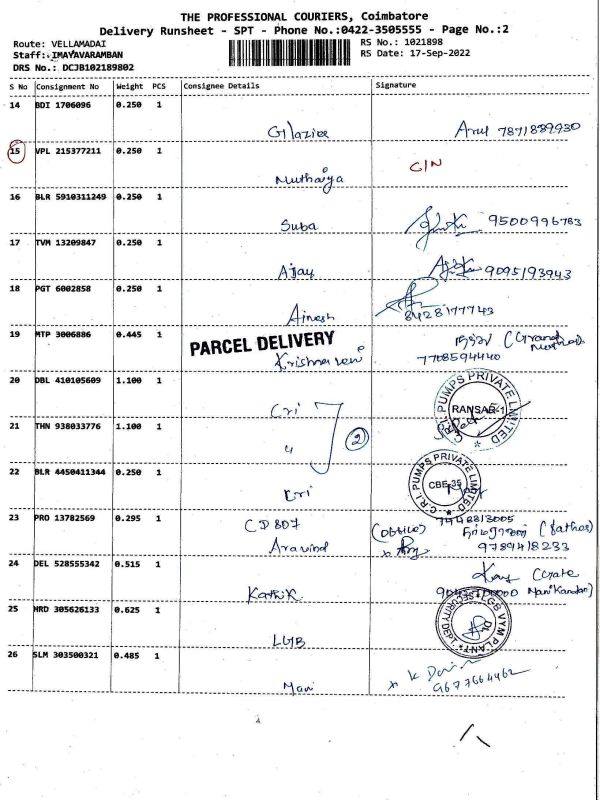 THE PROFESSIONAL COURIERS, Coimbatore
Delivery Runsheet - SPT - Phone No.:0422-3505555 - Page No.:2
Route: VELLAMADAI
RS No.: 1021898
Staff: IMAYAVARAMBAN
RS Date: 17-Sep-2022
DRS No.: DCJB102189802
S No Consignment No Weight PCS Consignee Details Signature
14 BDI 1706096 0.250 1
Arul 7871889930
15 VPL 215377211 0.250 1
Muthaiya C/N
16 BLR 5910311249 0.250 1
Suba 9500996763
17 TVM 13209847 0.250 1
Ajay 9095193943
18 PGT 6002858 0.250 1
8428177743
19 MTP 3006886 0.445 1
PARCEL DELIVERY
Krishnaveni 7708594440
20 DBL 410105609 1.100 1
Cri
C.R.I. PUMPS PRIVATE LIMITED
RANSAR-1
21 THN 938033776 1.100 1
" 2
22 BLR 4450411344 0.250 1
Cri
C.R.I. PUMPS PRIVATE LIMITED
CBE-35
23 PRO 13782569 0.295 1
CD 807 (Office) 7448813005
Aravind (father)
9789418233
24 DEL 528555342 0.515 1
Kathik
25 NRD 305626133 0.625 1
LGB
LGB VYM PLANT
26 SLM 303500321 0.485 1
Mani 9677664462